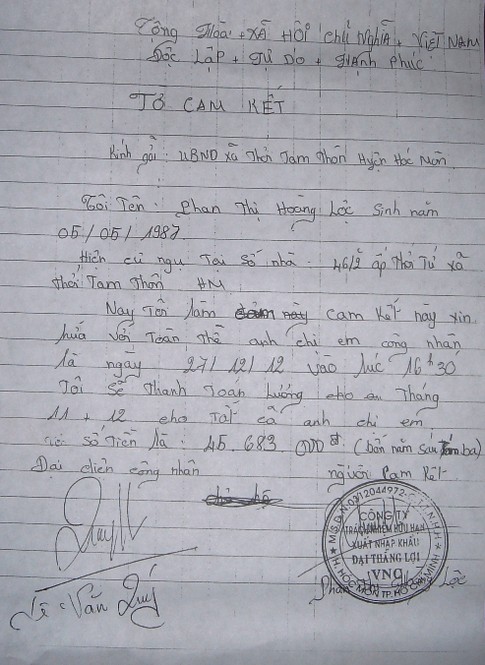 Cộng Hòa + Xã Hội Chủ Nghĩa + Việt Nam
Độc Lập + Tự Do + Hạnh Phúc
Tờ Cam Kết
Kính gởi: UBND Xã Thới Tam Thôn Huyện Hóc Môn
Tôi Tên: Phan Thị Hoàng Lộc Sinh năm
05/05/1987
Hiện cư ngụ Tại Số nhà: 46/2 ấp Thới Tứ xã
Thới Tam Thôn HM
Nay Tôi làm cam kết này xin
hứa với Toàn Thể anh chị em công nhân
là ngày 27/12/12 vào lúc 16h30
Tôi Sẽ Thanh Toán Lương cho Tháng
11 + 12 cho Tất cả anh chị em
với số Tiền là: 45.683.000đ (bốn năm sáu Tám ba)
Đại diện công nhân người Cam Kết
Lê Văn Quý
M.S.D.N:0312044972-C.T.T.N.H.H
CÔNG TY
TRÁCH NHIỆM HỮU HẠN
XUẤT NHẬP KHẨU
ĐẠI THẮNG LỢI
VNC
H. HÓC MÔN TP. HỒ CHÍ MINH
Phan Thị Lộc